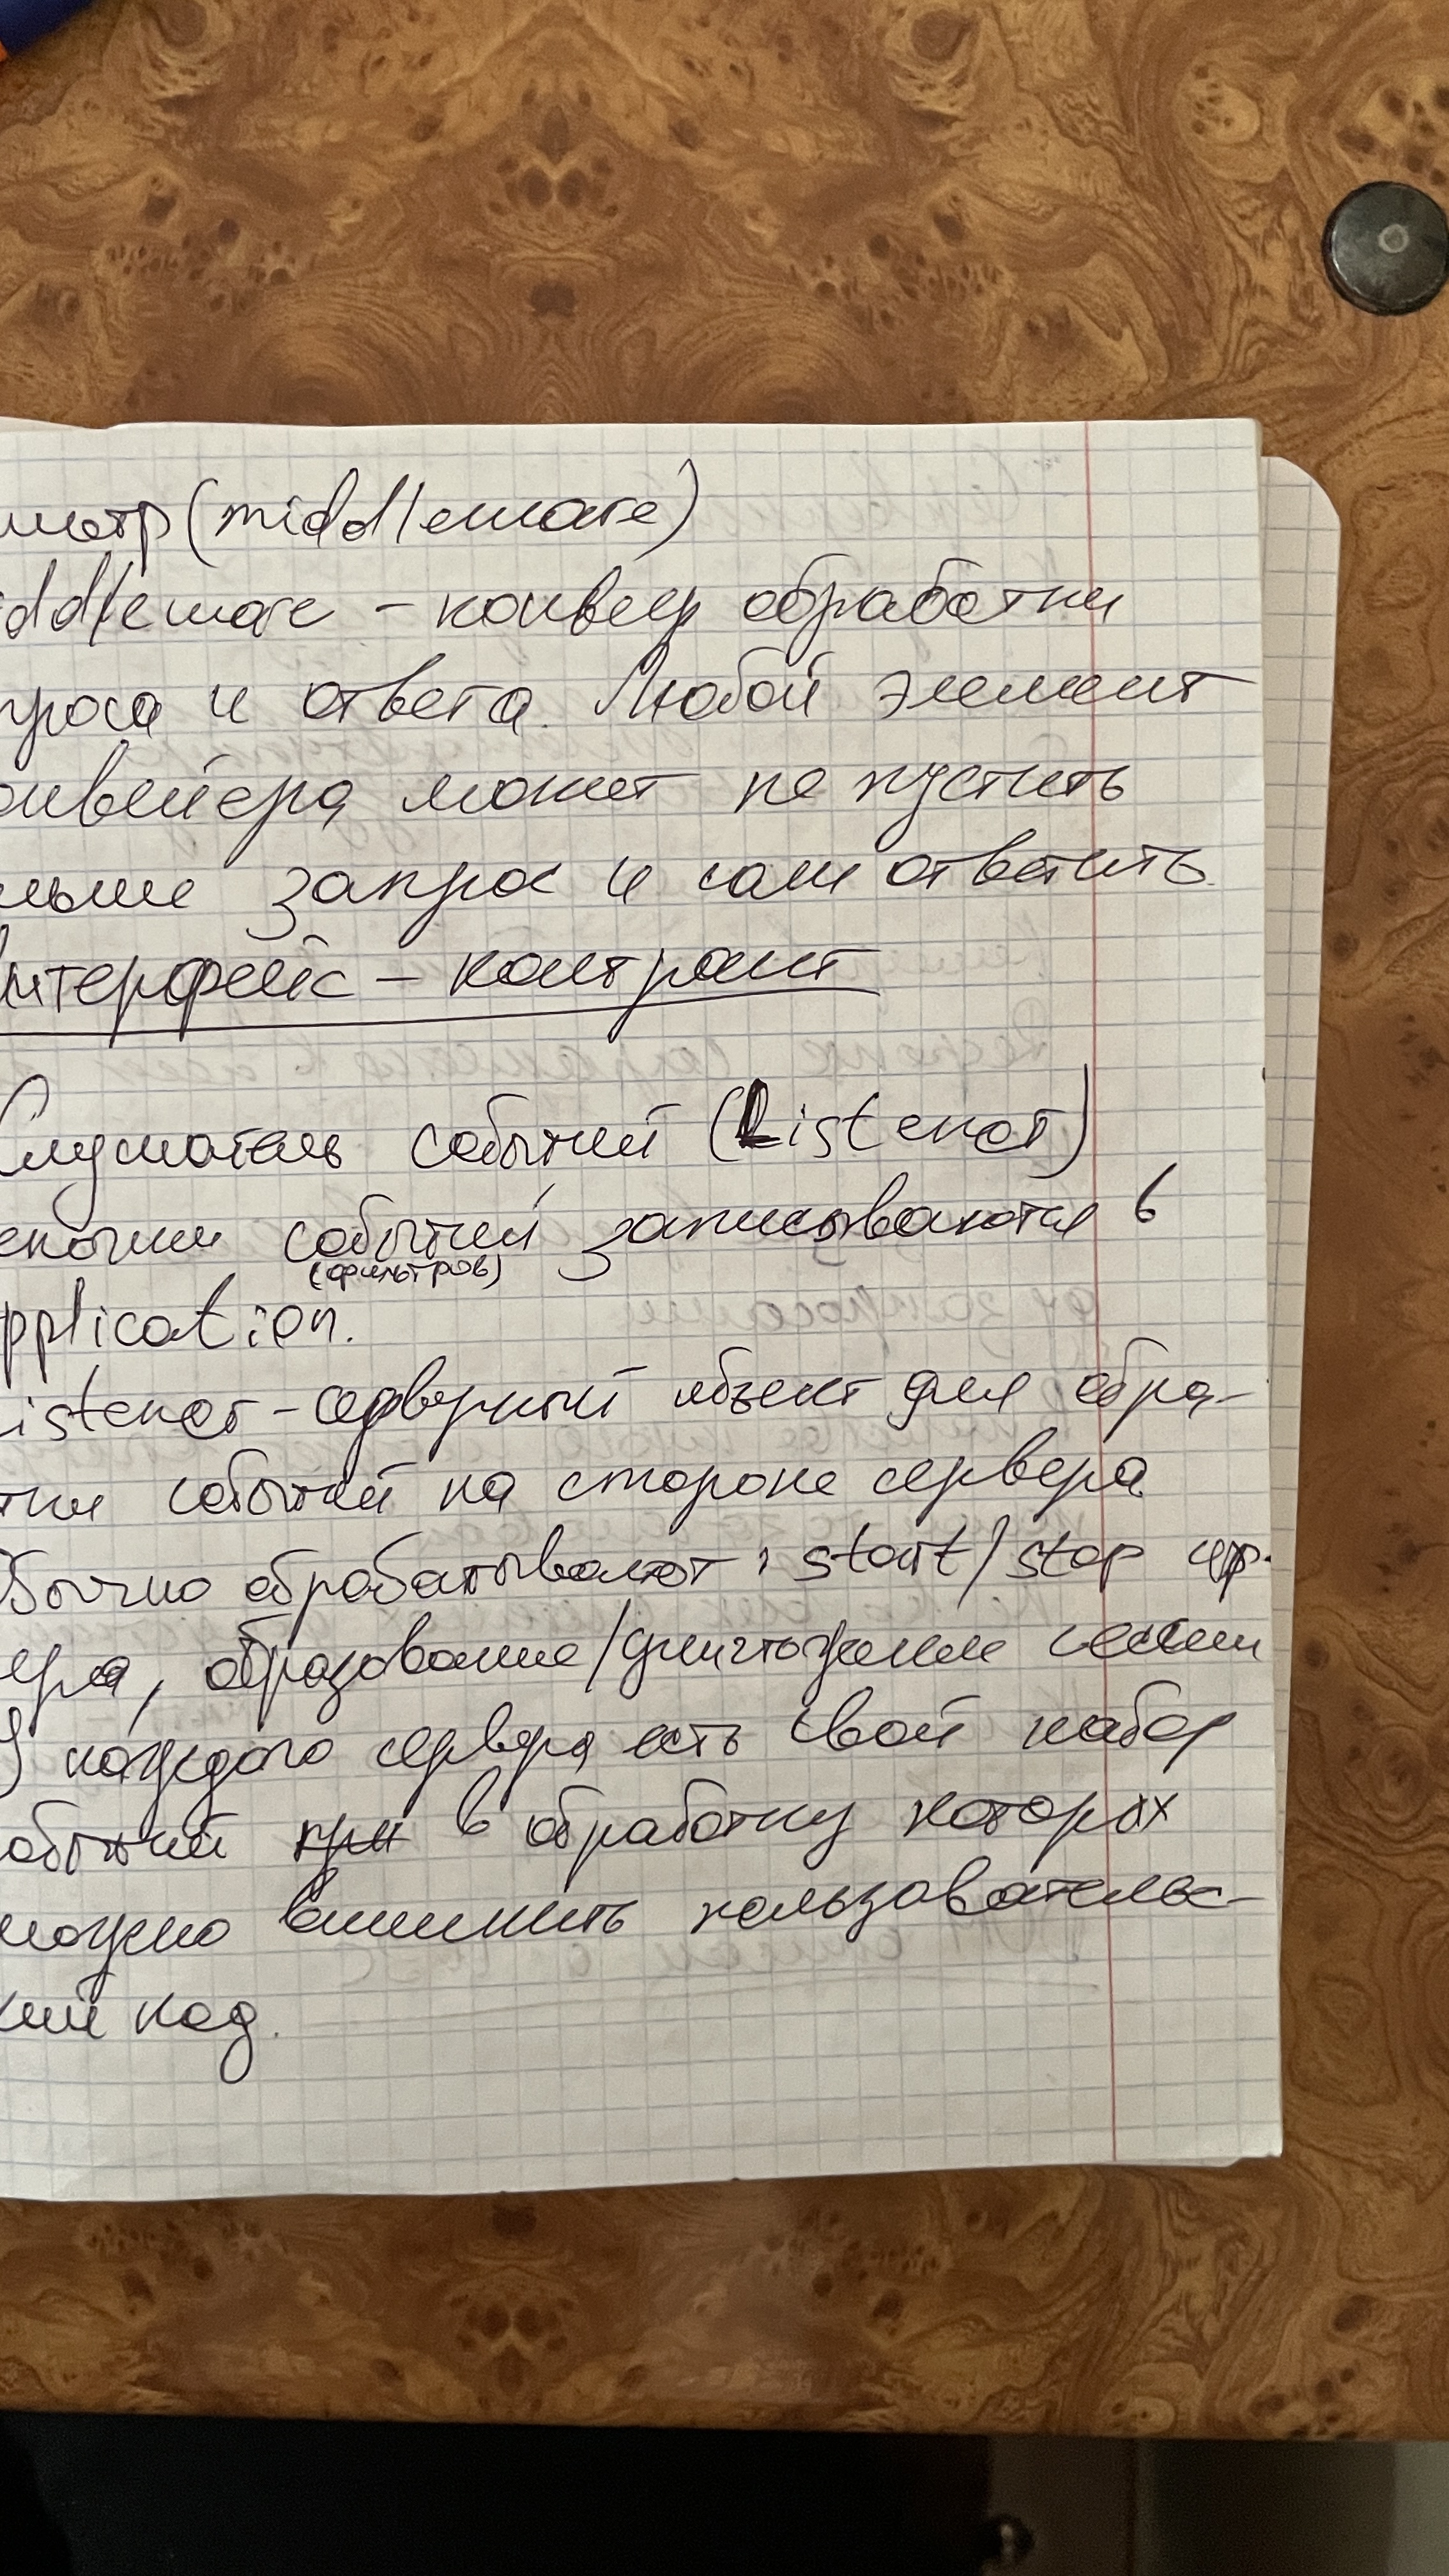 льтр (middleware)
ddleware – конвеер обработки
проса и ответа. Любой элемент
онвейера может не пустить
льше запрос и сам ответить.
Интерфейс – контракт
Слушатель событий (Listener)
епочки событий записываются в
(фильтров)
pplication.
istener – серверный объект для обра-
тки событий на стороне сервера
Обычно обрабатывают: start/stop
ера, образование/уничтожение сессии
У каждого сервера есть свой набор
обытий при в обработку которых
можно вклинить пользовательс-
кий код.